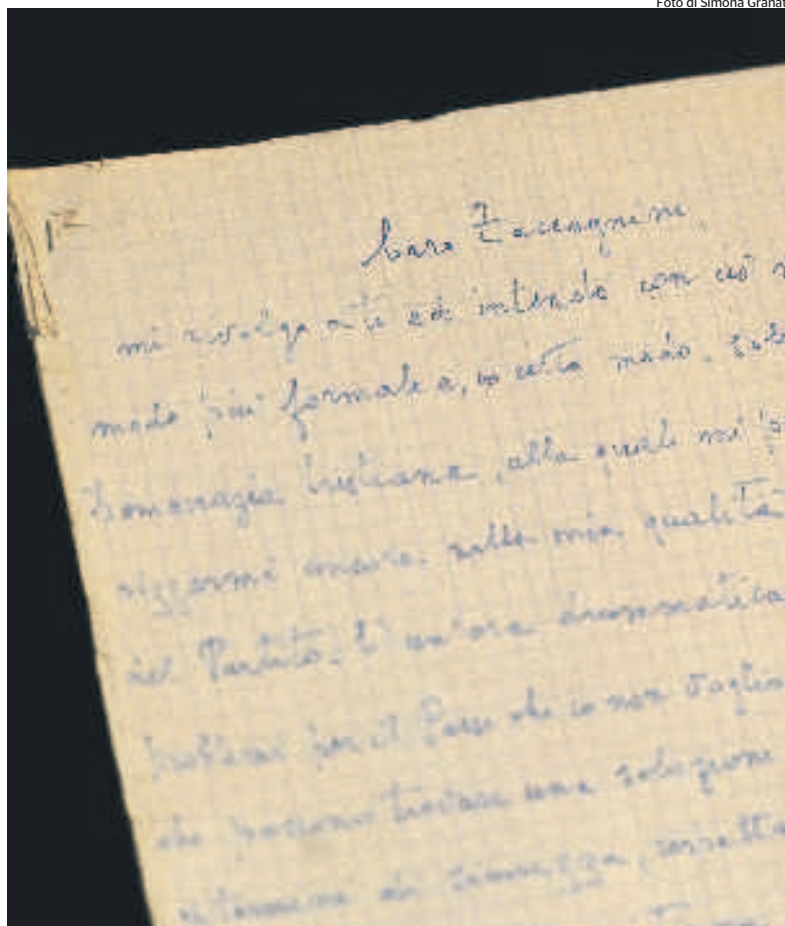 Foto di Simona Granat
Caro Zaccagnini,
mi rivolgo a te ed intendo con ciò
modo più formale e, in certo modo,
Democrazia Cristiana, alla quale mi
rizzarmi ancora nella mia qualità
del Partito. È un'ora drammatica
problemi per il Paese che io non voglio
che possono trovare una soluzione
termini di sicurezza, rispetta